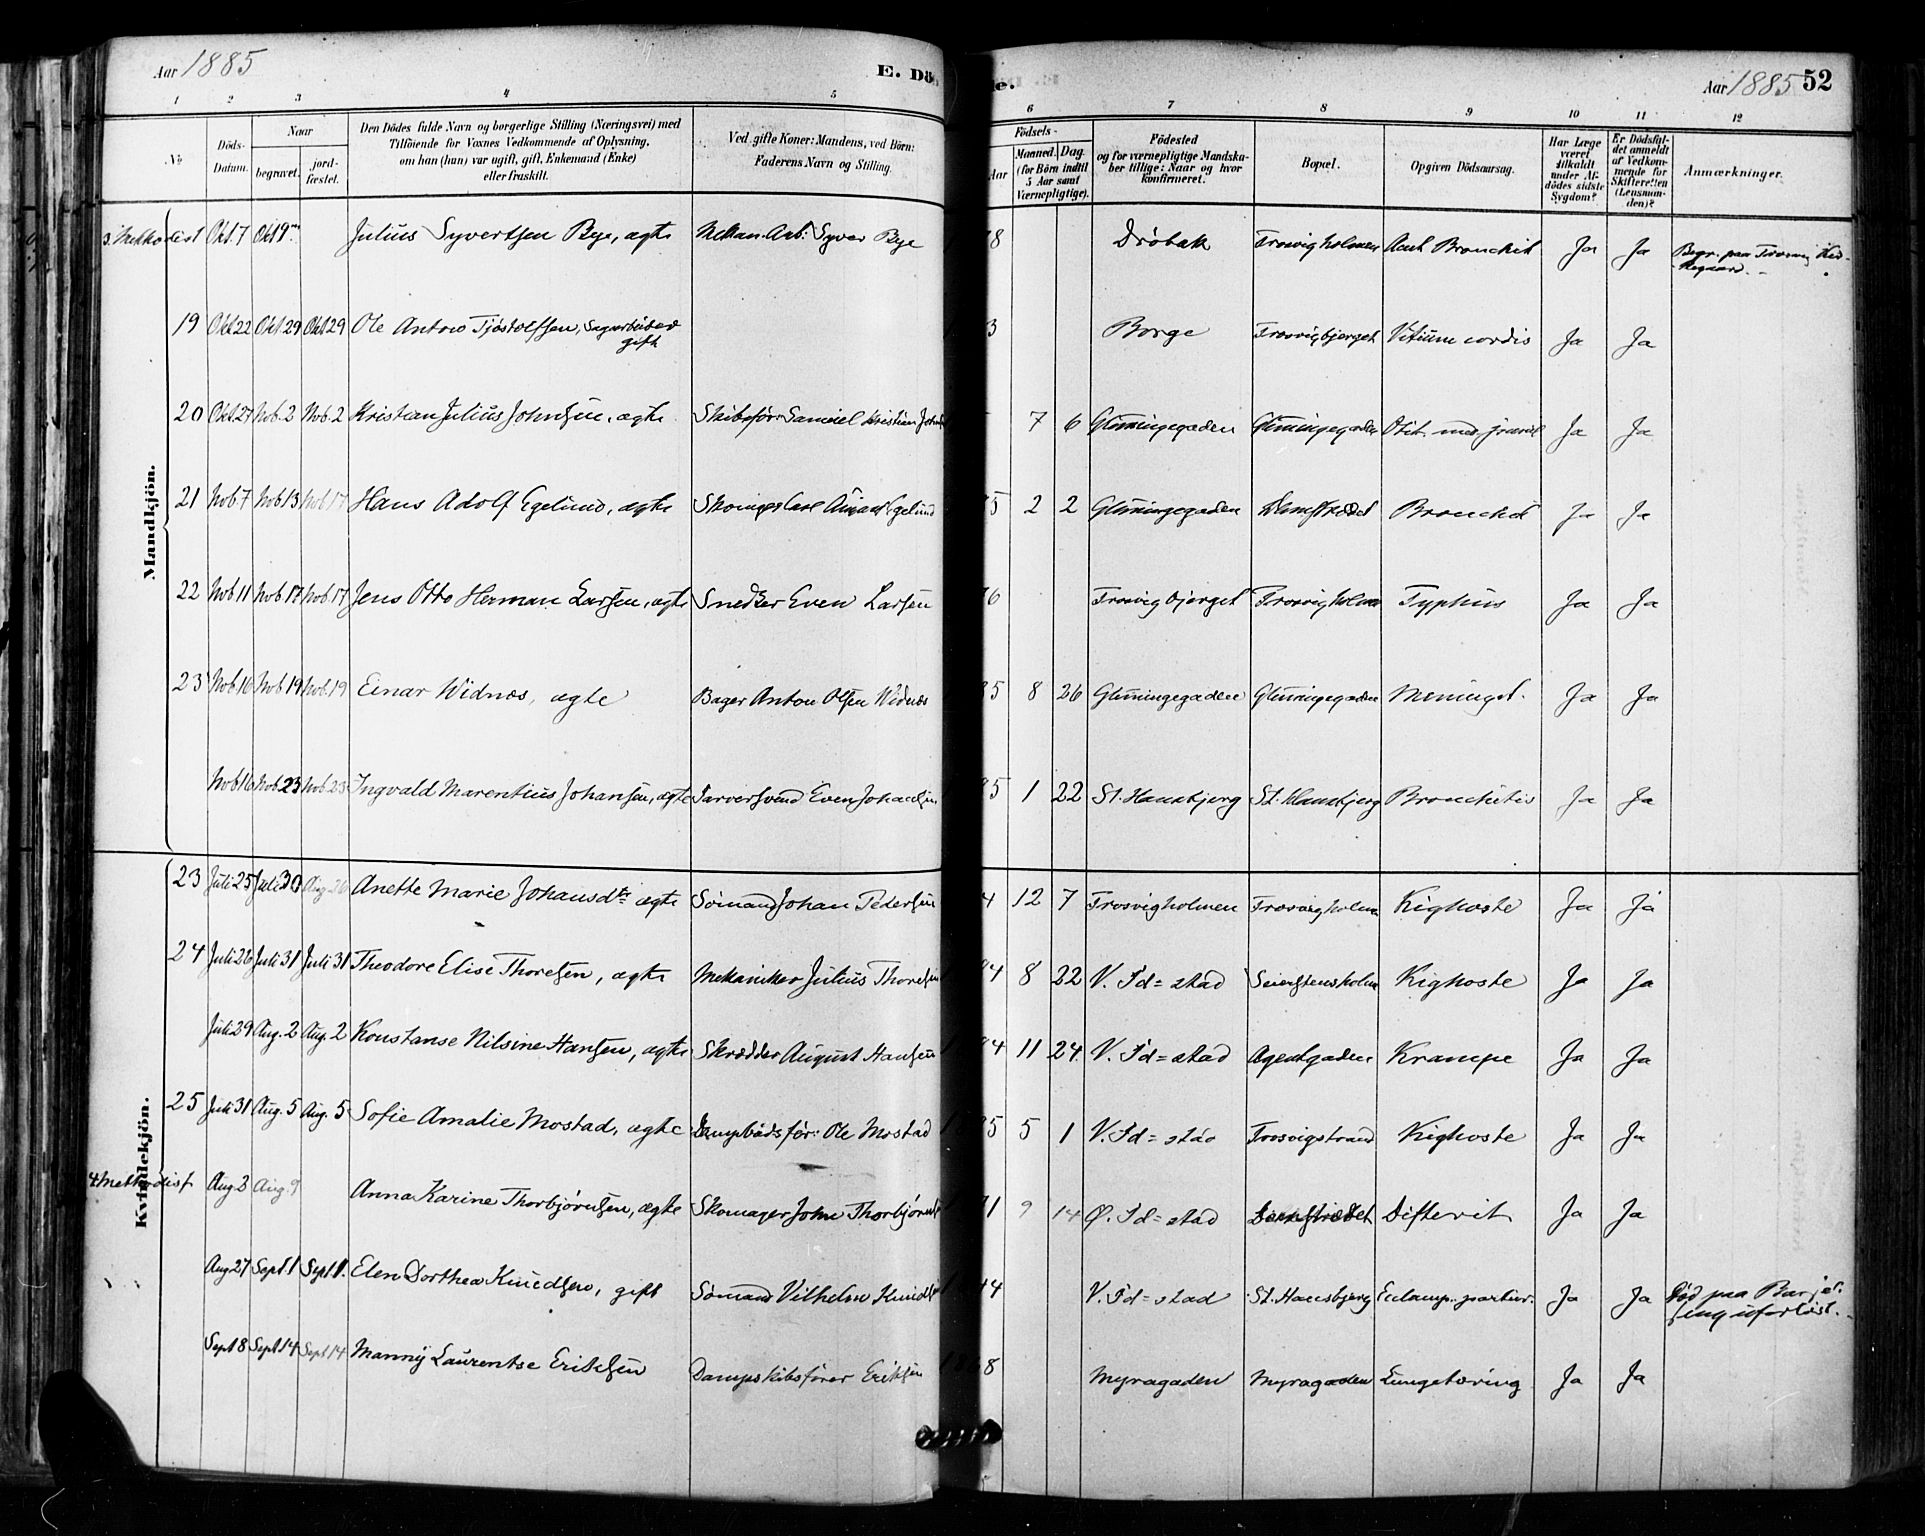 Aar 1885
E. Dö
de.
Aar 1885 52
1 2 3 4 5 6 7 8 9 10 11 12
No
Döds-Datum.
Naar
begravet.
jord-fæstet.
Den Dödes fulde Navn og borgerlige Stilling (Næringsvei) med
Tilföiende for Voxnes Vedkommende af Oplysning,
om han (hun) var ugift, gift, Enkemand (Enke)
eller fraskilt.
Ved gifte Koner: Mandens, ved Börn:
Faderens Navn og Stilling.
Födsels-
Aar
Maaned. Dag.
(for Börn indtil
5 Aar samt
Værnepligtige).
Födested
og for værnepligtige Mandska-
ber tillige: Naar og hvor
konfirmeret.
Bopæl.
Opgiven Dödsaarsag.
Har Læge
været
tilkaldt
under Af-
dödes sidste
Sygdom?
Er Dödsfal-
det anmeldt
af Vedkom-
mende for
Skifteretten
(Lensman-
den)?
Anmærkninger.
Mandkjön.
3. Methodist Okt. 7 Okt 9 Julius Syvertsen Bye, ægte Mekan. Arb: Syver Bye 78 Dröbak Trosvigholmen Acut Bronchit Ja Ja Begr. paa Trosvig Kir-
kegaard.
19 Okt 22 Okt. 29 Okt 29 Ole Anton Tjöstolfsen, Sagarbeider 3 Borge Trosvigbjerget Vitium cordis Ja Ja
gift
20 Okt. 27 Nob. 2 Nob. 2 Kristian Julius Johnsen, ægte Skibsför: Samuel Kristian 7 6 Glemmingegaden Glemmingegaden Otit. Ja Ja
21 Nob 7 Nob 13 Nob 17 Hans Adolf Egelund, ægte Egelund 85 2 2 Glemmingegaden Damstrædet Bronchit Ja Ja
22 Nob 11 Nob 17 Nob 17 Jens Otto Herman Larsen, ægte Snedker Even Larsen 76 Trosvigbjerget Trosvigholmen Typhus Ja Ja
23 Nob. 16 Nob 19 Nob. 19 Einar Widnæs, ægte Bager Anton Olsen Widnæs 85 8 26 Glemmingegaden Glemmingegaden Meningit. Ja Ja
Nob 16 Nob. 23 Nob. 23 Ingvald Marentius Johansen, ægte Garversvend Even Johansen 85 1 22 St. Hansbjerg St. Hansbjerg Bronchitis Ja Ja
Kvindekjön.
23 Juli 25 Juli 30 Aug. 26 Anette Marie Johansdtr ægte Sömand Johan Pedersen 4 12 7 Trosvigholmen Trosvigholmen Kighoste Ja Ja
24 Juli 26 Juli 31 Juli 31 Theodore Elise Thoresen, ægte Mekaniker Julius Thoresen 84 8 22 V. Fd=stad Seierstensholmen Kighoste Ja Ja
Juli 29 Aug. 2 Aug. 2 Konstanse Nilsine Hansen, ægte Skrædder August Hansen 84 11 24 V. Fd=stad Agentgaden Krampe Ja Ja
25 Juli 31 Aug. 5 Aug. 5 Sofie Amalie Mostad, ægte Dampbådsför: Ole Mostad 85 5 1 V. Fd=stad Trosvigstrand Kighoste Ja Ja
4 Methodist Aug 2 Aug. 9 Anna Karine Thorbjörnsen, ægte Skomager John Thorbjörnsen 71 9 14 Ø. Fd=stad Damstrædet Difterit Ja Ja
Aug 27 Sept. 1 Sept 1. Elen Dorthea Knudsen, gift Sömand Vilhelm Knuds 44 V. Fd=stad St. Hansbjerg Eclamp. partur. Ja Ja Död paa Barsel-
seng uforlöst.
Sept 8 Sept 14 Sept 14 Manny Laurentse Eriksen Dampskibsförer Eriksen 8 Myragaden Myragaden Lungetæring Ja Ja